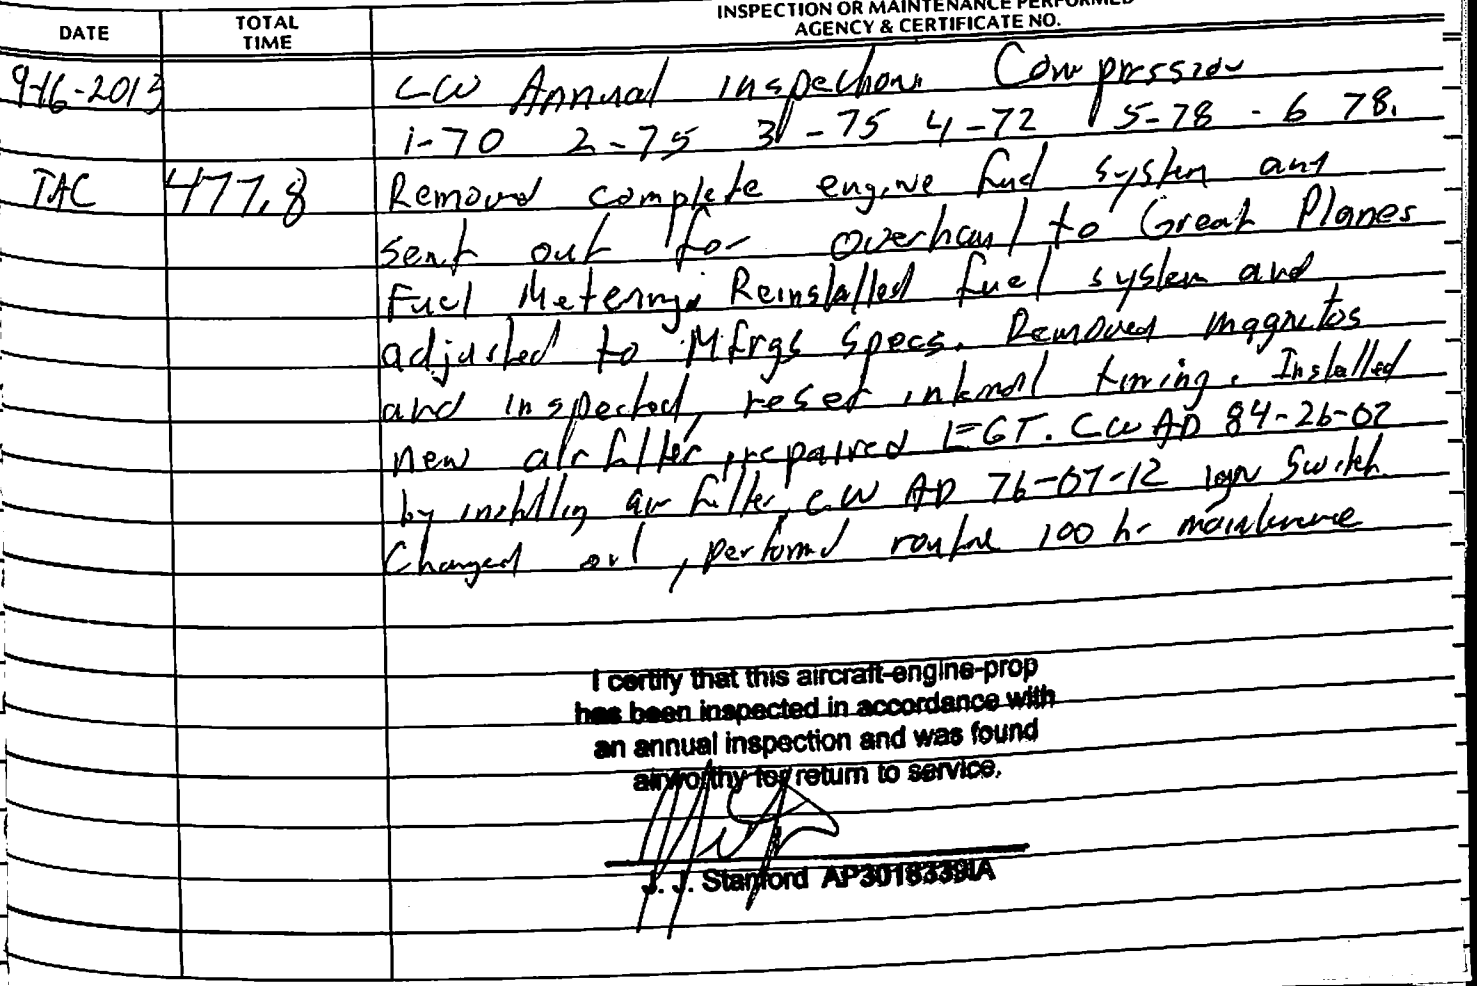 DATE
TOTAL TIME
INSPECTION OR MAINTENANCE PERFORMED
AGENCY & CERTIFICATE NO.
9-16-2013 CW Annual inspection. Compression
1-70 2-75 3-75 4-72 5-78 - 6 78.
TAC 477.8 Removed complete engine fuel system and
sent out for overhaul to Great Planes
Fuel Metering. Reinstalled fuel system and
adjusted to Mfrgs Specs. Removed magnetos
and inspected, reset internal timing. Installed
new air filter, repaired EGT. CW AD 84-26-02
by installing air filter, C.W AD 76-07-12 ign Switch
Changed oil, performed routine 100 hr maintenance
I certify that this aircraft-engine-prop
has been inspected in accordance with
an annual inspection and was found
airworthy for return to service.
J. J. Stanford AP3018339IA